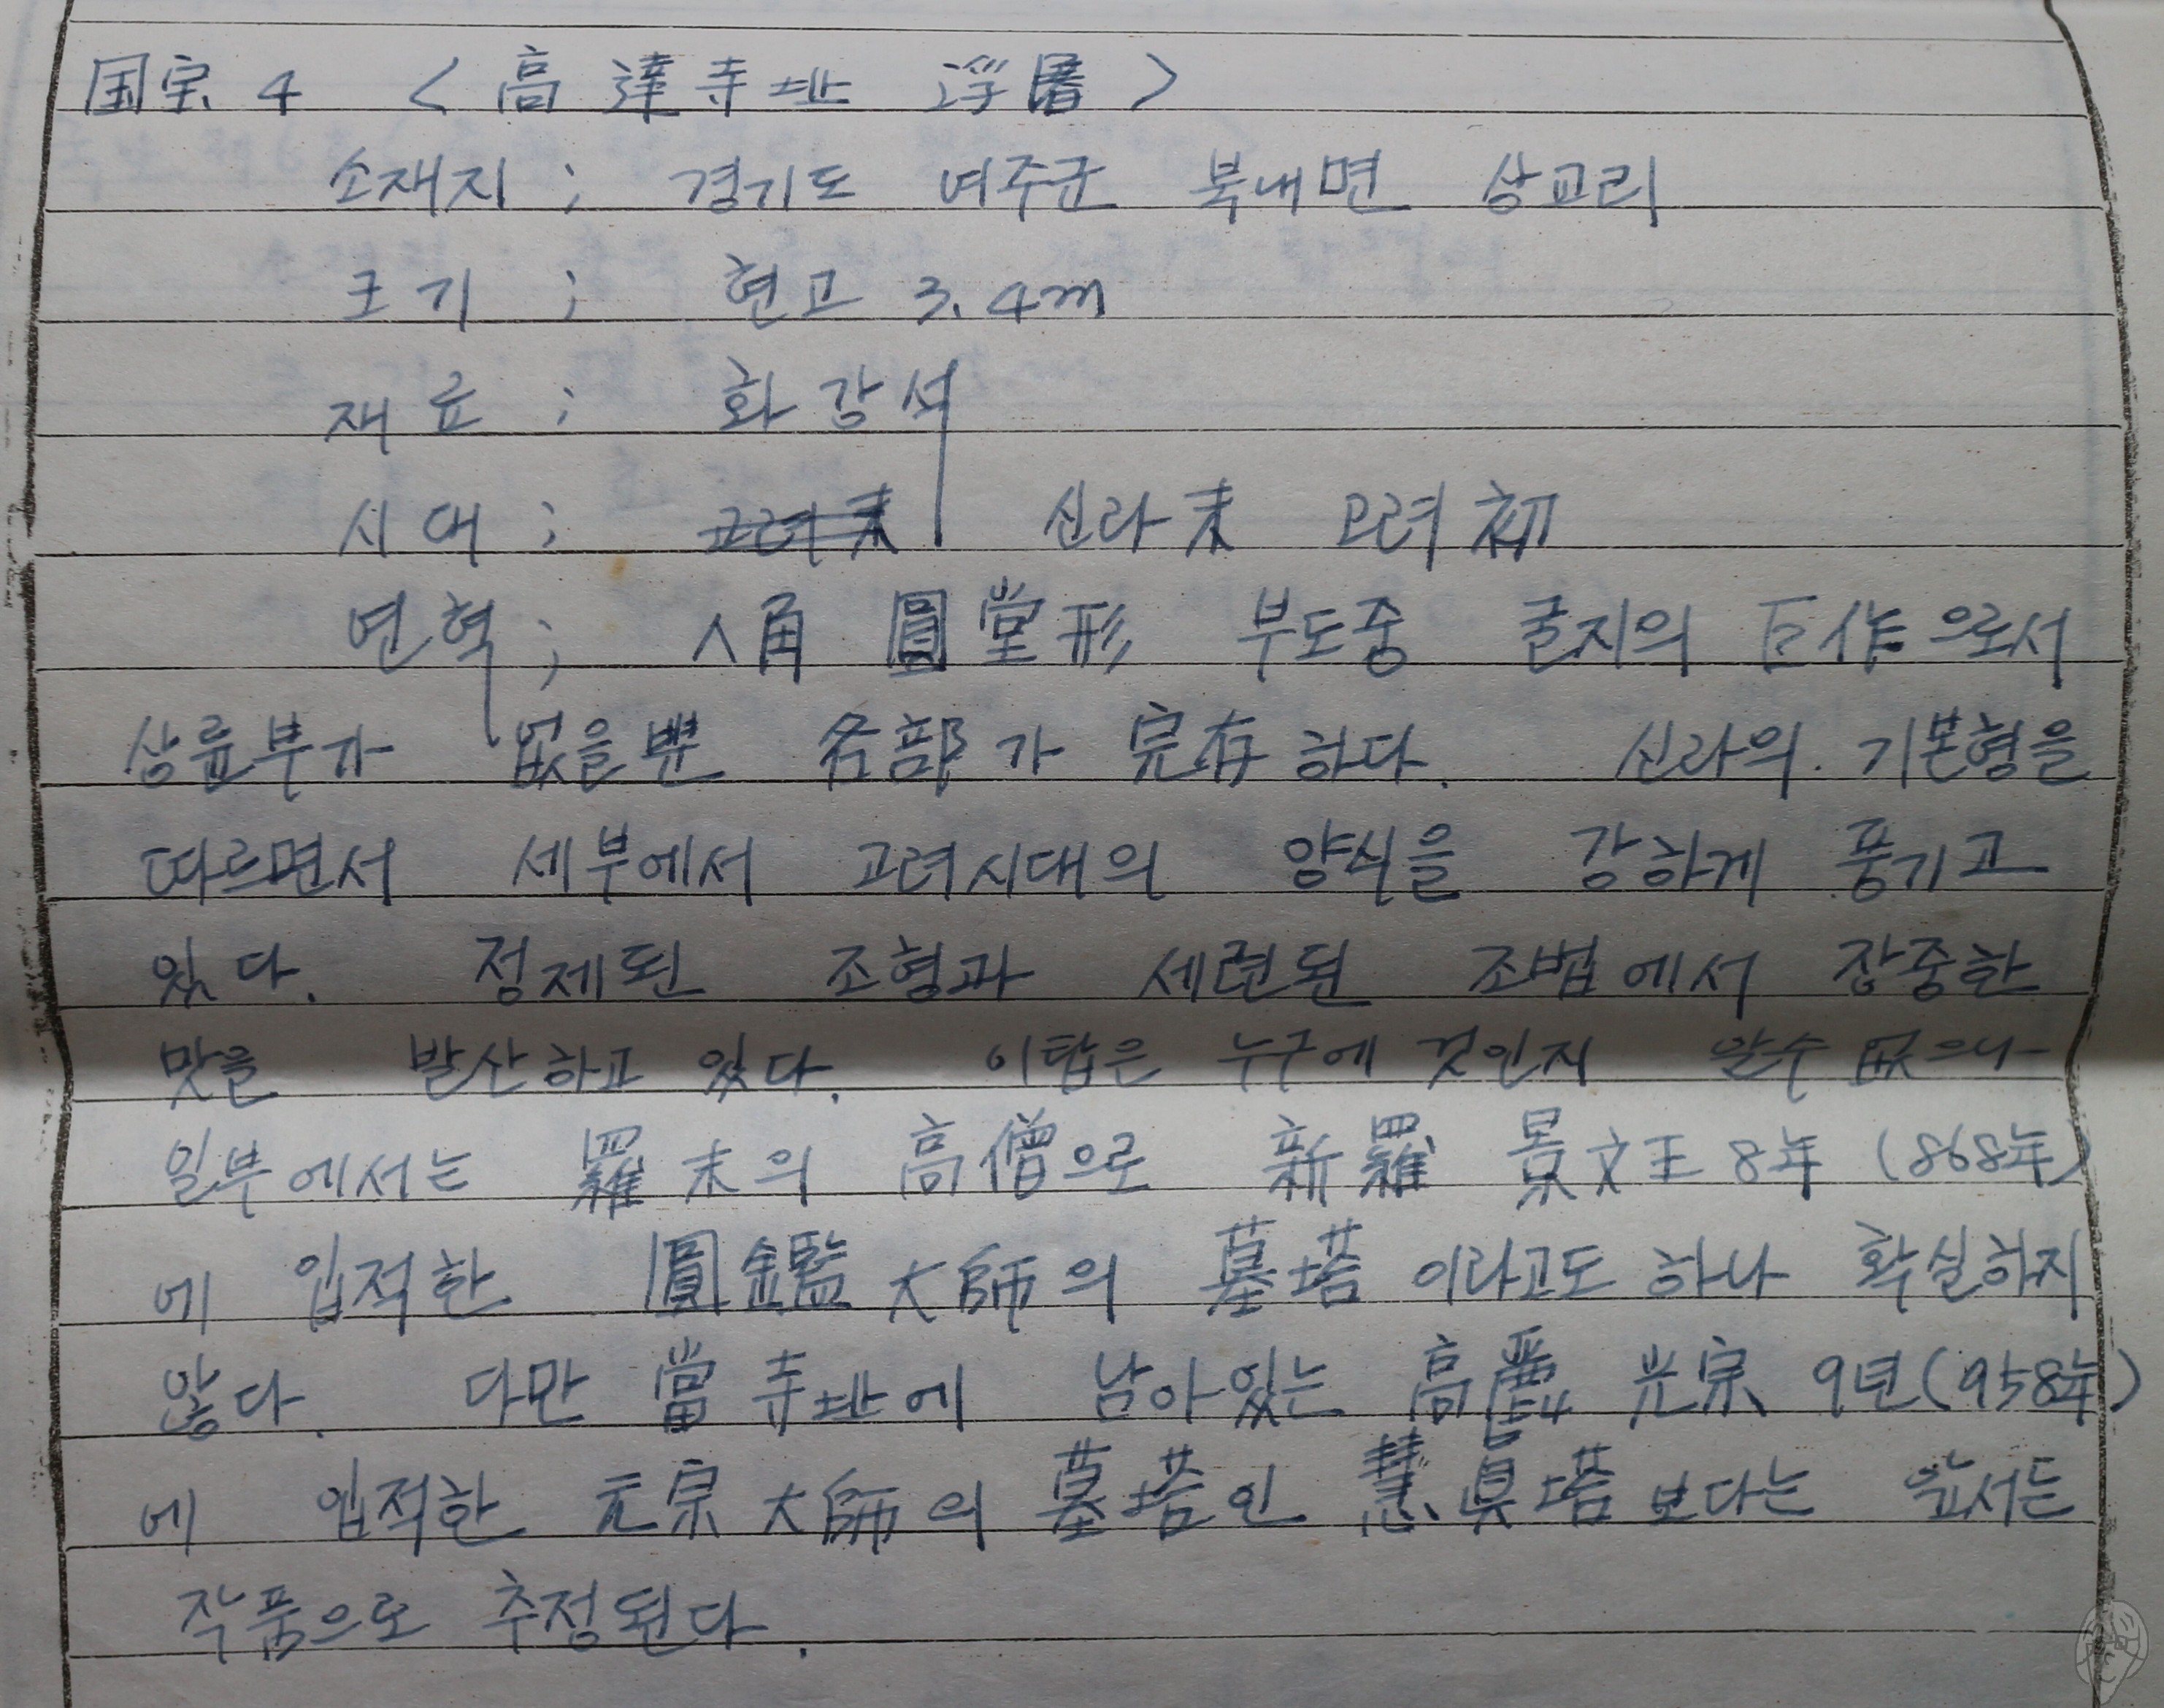 国宝 4 < 高達寺址 浮屠 >
소재지 ; 경기도 여주군 북내면 상교리
크기 ; 현고 3.4m
재료 ; 화강석
시대 ; 고려末 신라末 고려初
연혁 ; 八角 圓堂形 부도중 굴지의 巨作으로서
상륜부가 없을뿐 各部가 完存하다. 신라의 기본형을
따르면서 세부에서 고려시대의 양식을 강하게 풍기고
있다. 정제된 조형과 세련된 조법에서 장중한
맛을 발산하고 있다. 이탑은 누구에 것인지 알수 없으나
일부에서는 羅末의 高僧으로 新羅 景文王 8年 (868年)
에 입적한 圓鑑大師의 墓塔이라고도 하나 확실하지
않다. 다만 當寺址에 남아있는 高麗 光宗 9년(958年)
에 입적한 元宗大師의 墓塔인 慧眞塔보다는 앞서는
작품으로 추정된다.